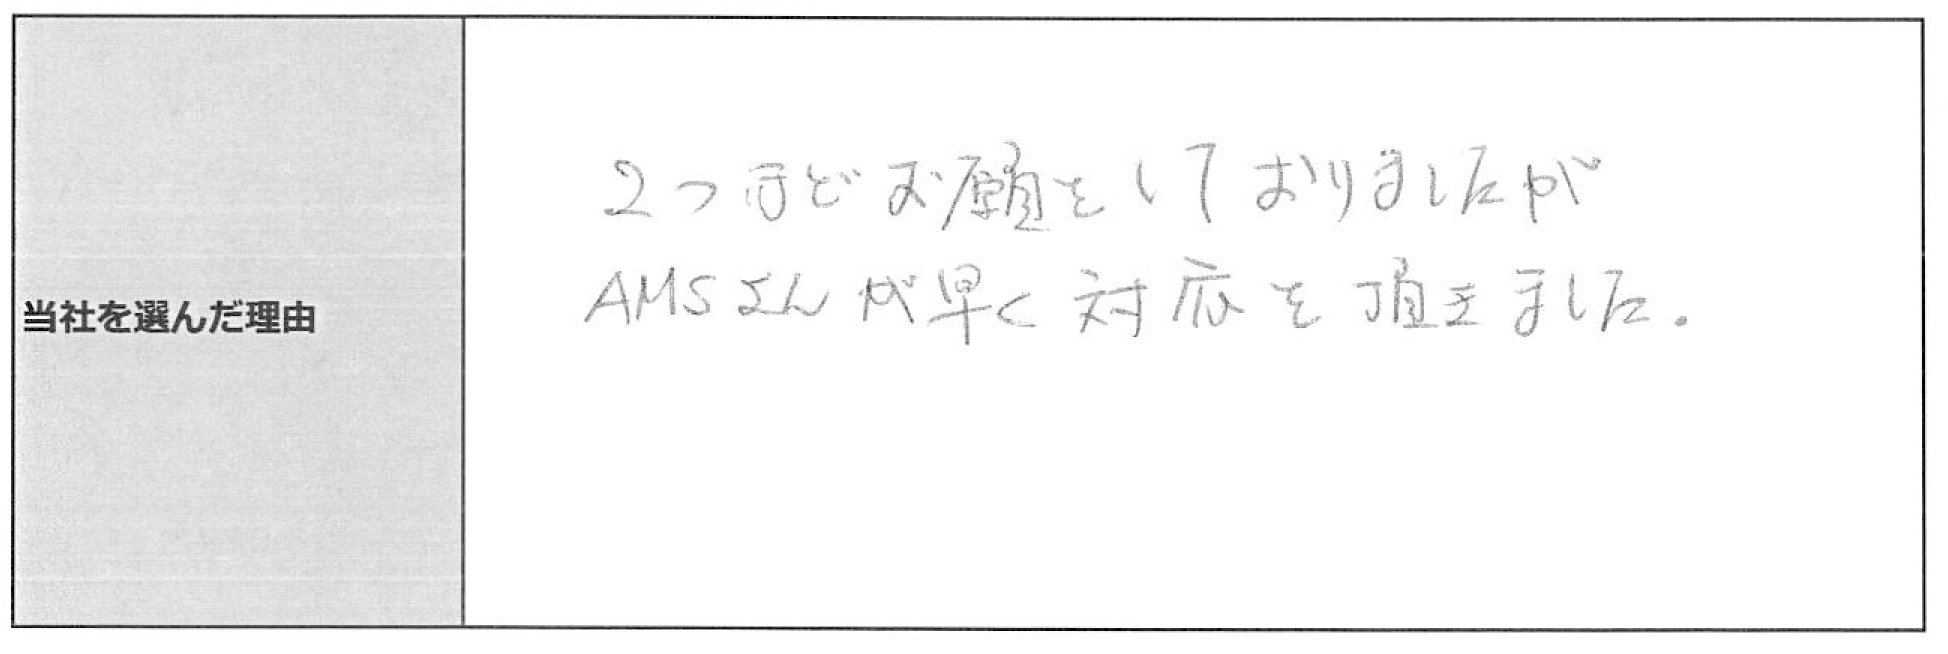 当社を選んだ理由
2つほどお願をしておりましたが
AMSさんが早く対応を頂きました。